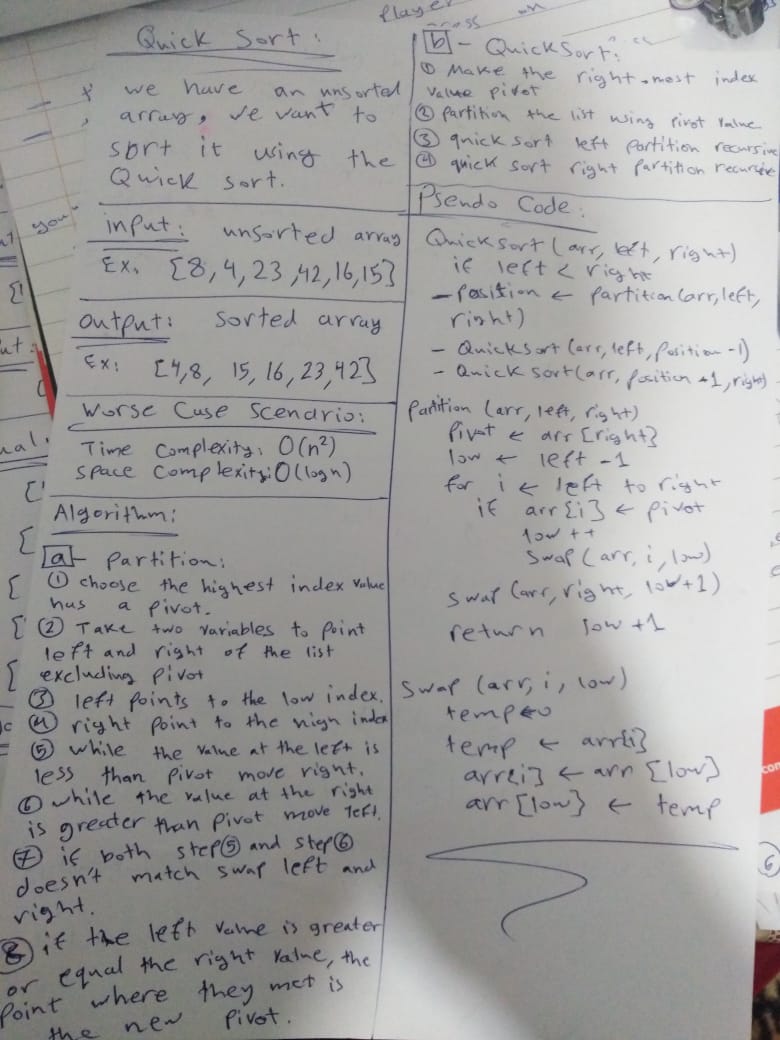 Player
on
Quick Sort:
we have an unsorted
array, we want to
sort it using the
Quick sort.
input: unsorted array
Ex, [8,4,23,42,16,15]
output: sorted array
Ex: [4,8, 15,16,23,42]
Worse Case Scendrio:
Time Complexity: O(n²)
Space Complexity: O(log n)
Algorithm:
[a]- Partition:
① choose the highest index value
has a pivot.
② Take two variables to point
left and right of the list
excluding pivot
③ left points to the low index.
④ right point to the high index
⑤ while the value at the left is
less than Pivot move right.
⑥ while the value at the right
is greater than Pivot move left.
⑦ if both step⑤ and step⑥
doesn't match swap left and
right.
⑧ if the left value is greater
or equal the right value, the
Point where they met is
the new Pivot.
[b]- QuickSort:
① Make the right-most index
value pivot
② partition the list using pivot value
③ quick sort left partition recursive
④ quick sort right partition recursive
Pseudo Code:
Quicksort (arr, left, right)
if left < right
- Position ← partition (arr, left,
right)
- QuickSort (arr, left, Position -1)
- QuickSort (arr, position +1, right)
Partition (arr, left, right)
Pivot ← arr [right]
low ← left -1
for i ← left to right
if arr[i] ← pivot
low ++
Swap (arr, i, low)
swap (arr, right, low+1)
return low +1
Swap (arr, i, low)
temp←0
temp ← arr[i]
arr[i] ← arr [low]
arr [low] ← temp
you
con
6